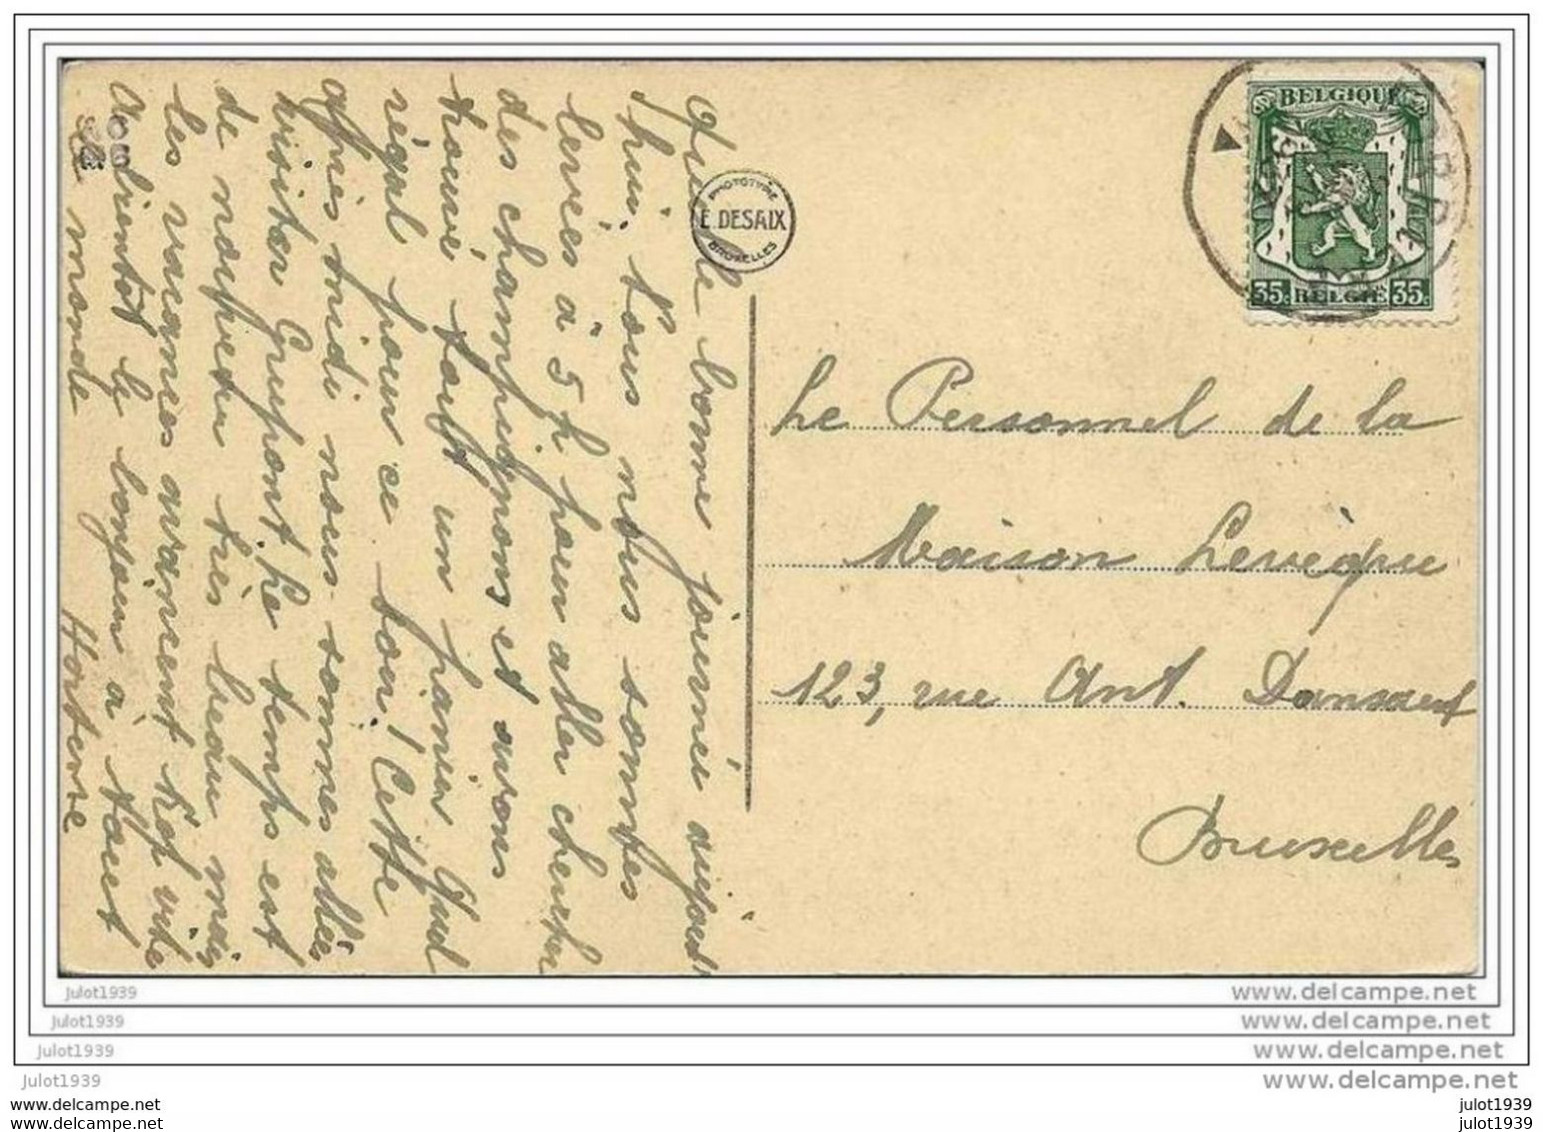 Quelle bonne journée aujourd'
hui, tous nous sommes
levés à 5 h pour aller chercher
des champignons et avons
trouvé tout un panier Quel
régal pour ce soir! Cette
après midi nous sommes allés
visiter Grupont. Le temps est
de nouveau très beau mais
les vacances avancent trop vite
A bientôt le bonjour à tout
le monde Hortense
PHOTOTYPIE
E. DESAIX
BRUXELLES
BELGIQUE
35c BELGIË 35c
Le Personnel de la
Maison Levèque
123, rue Ant. Dansaert
Bruxelles
julot1939
www.delcampe.net
julot1939
www.delcampe.net
julot1939
www.delcampe.net
julot1939
www.delcampe.net
www.delcampe.net
julot1939
www.delcampe.net
julot1939